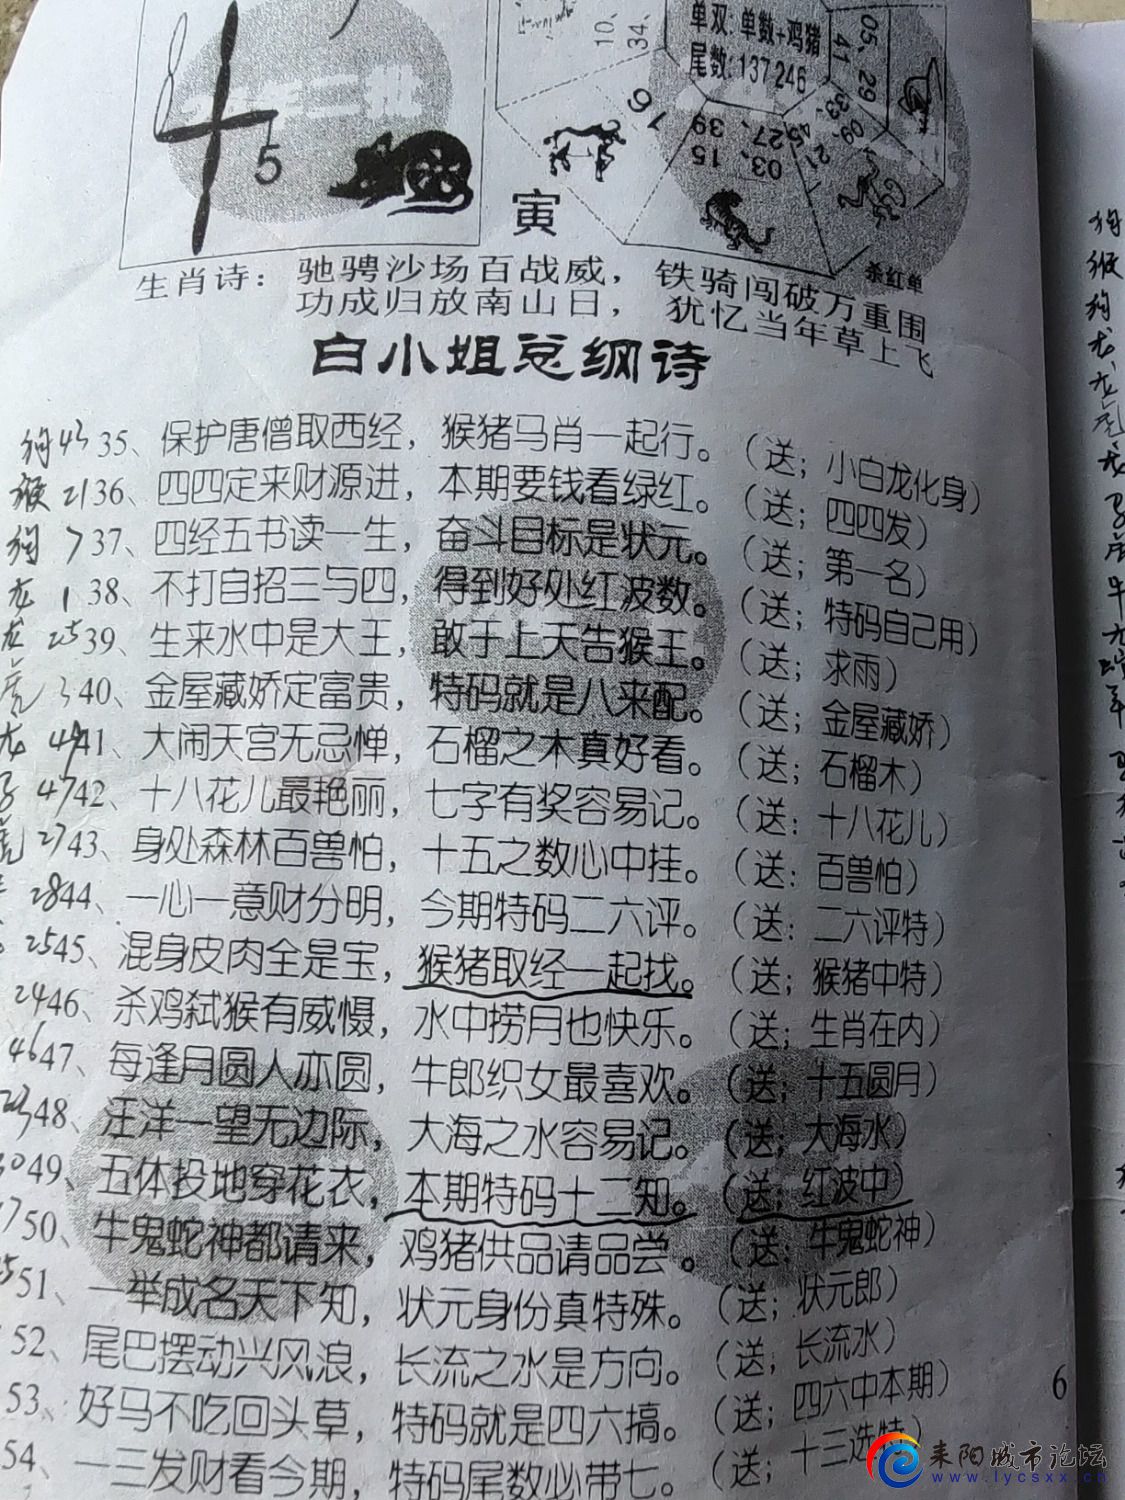 单双:单数+鸡猪
尾数:137 246
10、
34、
05、
41
29
33、
09、
45
21
16
39
27、
15
03、
5
寅
杀红单
生肖诗：驰骋沙场百战威，铁骑闯破万重围
功成归放南山日，犹忆当年草上飞
白小姐总纲诗
狗 43 35、保护唐僧取西经，猴猪马肖一起行。（送；小白龙化身）
猴 21 36、四四定来财源进，本期要钱看绿红。（送；四四发）
狗 7 37、四经五书读一生，奋斗目标是状元。（送；第一名）
龙 1 38、不打自招三与四，得到好处红波数。（送；特码自己用）
龙 25 39、生来水中是大王，敢于上天告猴王。（送；求雨）
虎 3 40、金屋藏娇定富贵，特码就是八来配。（送；金屋藏娇）
龙 49 41、大闹天宫无忌惮，石榴之木真好看。（送；石榴木）
47 42、十八花儿最艳丽，七字有奖容易记。（送：十八花儿）
虎 27 43、身处森林百兽怕，十五之数心中挂。（送：百兽怕）
28 44、一心一意财分明，今期特码二六评。（送：二六评特）
25 45、混身皮肉全是宝，猴猪取经一起找。（送；猴猪中特）
24 46、杀鸡弑猴有威慑，水中捞月也快乐。（送；生肖在内）
46 47、每逢月圆人亦圆，牛郎织女最喜欢。（送；十五圆月）
48、汪洋一望无边际，大海之水容易记。（送；大海水）
30 49、五体投地穿花衣，本期特码十二知。（送；红波中）
50、牛鬼蛇神都请来，鸡猪供品请品尝。（送；牛鬼蛇神）
51、一举成名天下知，状元身份真特殊。（送；状元郎）
52、尾巴摆动兴风浪，长流之水是方向。（送；长流水）
53、好马不吃回头草，特码就是四六搞。（送；四六中本期）
54、一三发财看今期，特码尾数必带七。（送；十三选特）
6
耒阳城市论坛
www.lycsxx.cn